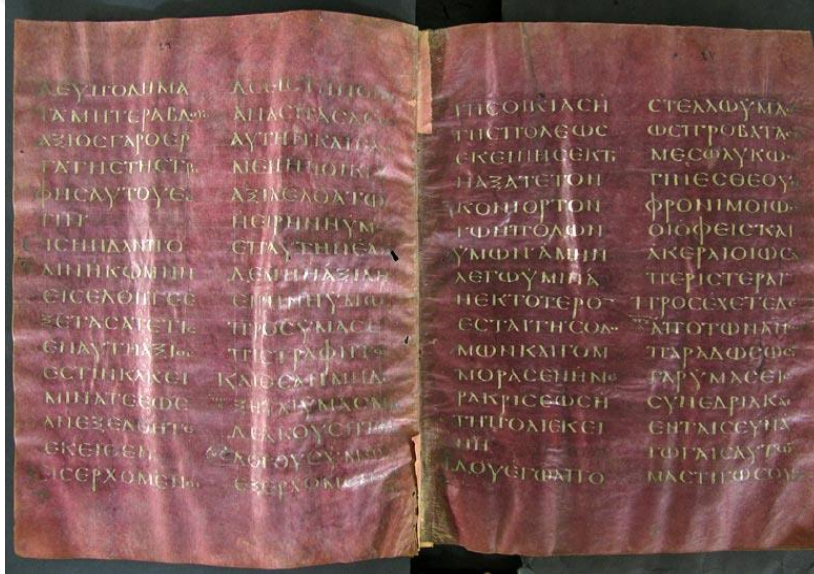 ΔΕΥΠΟΔΗΜΑ
ΤΑΜΗΤΕΡΑΒΔΟΥ
ΑΞΙΟϹΓΑΡΟΕΡ
ΓΑΤΗϹΤΗϹΤΡ
ΦΗϹΑΥΤΟΥΕϹ
ΤΙΝ
ΕΙϹΗΝΔΑΝΠΟ
ΛΙΝΗΚΩΜΗΝ
ΕΙϹΕΛΘΗΤΕΕ
ΞΕΤΑϹΑΤΕΤΙϹ
ΕΝΑΥΤΗΑΞΙΟϹ
ΕϹΤΙΝΚΑΚΕΙ
ΜΙΝΑΤΕΕΩϹ
ΑΝΕΞΕΛΘΗΤΕ
ΕΚΕΙΘΕΝ
ΕΙϹΕΡΧΟΜΕΝΟΙ
ΑΝΑϹΠΑϹΑϹΘΕ
ΑΥΤΗΝΚΑΙΕΑΝ
ΜΕΝΗΗΟΙΚΙΑ
ΑΞΙΑΕΛΘΑΤΩ
ΗΕΙΡΗΝΗΥΜΩ
ΕΠΑΥΤΗΝΕΑΝ
ΔΕΜΗΗΑΞΙΑΗ
ΕΙΡΗΝΗΥΜΩ
ΠΡΟϹΥΜΑϹΕ
ΠΙϹΤΡΑΦΗΤΩ
ΚΑΙΟϹΑΝΜΗΔΕ
ΞΗΤΑΙΥΜΑϹΜΗ
ΔΕΑΚΟΥϹΗΤΟΥϹ
ΛΟΓΟΥϹΥΜΩΝ
ΕΞΕΡΧΟΜΕΝΟΙ
ΤΗϹΟΙΚΙΑϹΗ
ΤΗϹΠΟΛΕΩϹ
ΕΚΕΙΝΗϹΕΚΤΙ
ΝΑΞΑΤΕΤΟΝ
ΚΟΝΙΟΡΤΟΝ
ΤΩΝΠΟΔΩΝ
ΥΜΩΝΑΜΗΝ
ΛΕΓΩΥΜΙΝΑ
ΝΕΚΤΟΤΕΡΟ
ΕϹΤΑΙΓΗϹΟΔΟ
ΜΩΝΚΑΙΓΟΜ
ΜΟΡΑϹΕΝΗΜΕ
ΡΑΚΡΙϹΕΩϹΗ
ΤΗΠΟΛΙΕΚΕΙ
ΝΗ
ΙΔΟΥΕΓΩΑΠΟ
ϹΤΕΛΛΩΥΜΑϹ
ΩϹΠΡΟΒΑΤΑΕ
ΜΕϹΩΛΥΚΩ
ΓΙΝΕϹΘΕΟΥ
ΦΡΟΝΙΜΟΙΩϹ
ΟΙΟΦΕΙϹΚΑΙ
ΑΚΕΡΑΙΟΙΩϹΑΙ
ΠΕΡΙϹΤΕΡΑΙ
ΠΡΟϹΕΧΕΤΕΔΕ
ΑΠΟΤΩΝΑΝ
ΠΑΡΑΔΩϹΩϹΙ
ΓΑΡΥΜΑϹΕΙϹ
ϹΥΝΕΔΡΙΑΚΑΙ
ΕΝΤΑΙϹϹΥΝΑ
ΓΩΓΑΙϹΑΥΤΩ
ΜΑϹΤΙΓΩϹΟΥ